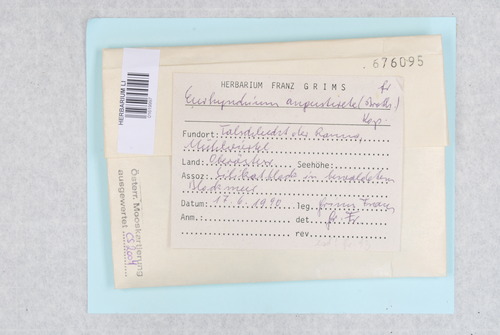 676095
HERBARIUM LI
HERBARIUM FRANZ GRIMS fr
Eurhynchium angustirete (Broth.)
Kop.
Fundort: Talschlucht der Ranna,
Mühlviertel
Land: Oberösterr. Seehöhe:
Assoz: Silikatblock in bewaldetem
Blockmeer
Datum: 17.6.1990 leg. Grims Franz
Anm.: det. Gr. Fr.
rev.
Österr. Mooskartierung
ausgewertet